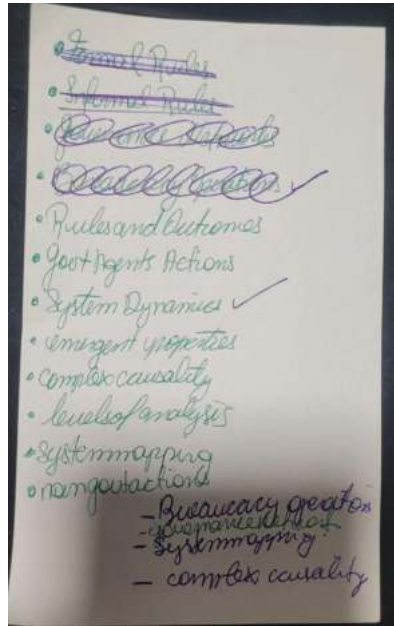 • Formal Rules
• Informal Rules
• Rules and Outcomes
• Govt Agents Actions
• System Dynamics
• emergent properties
• complex causality
• levels of analysis
• system mapping
• nongovtactions
– Bureaucracy operation
– System mapping
– complex causality